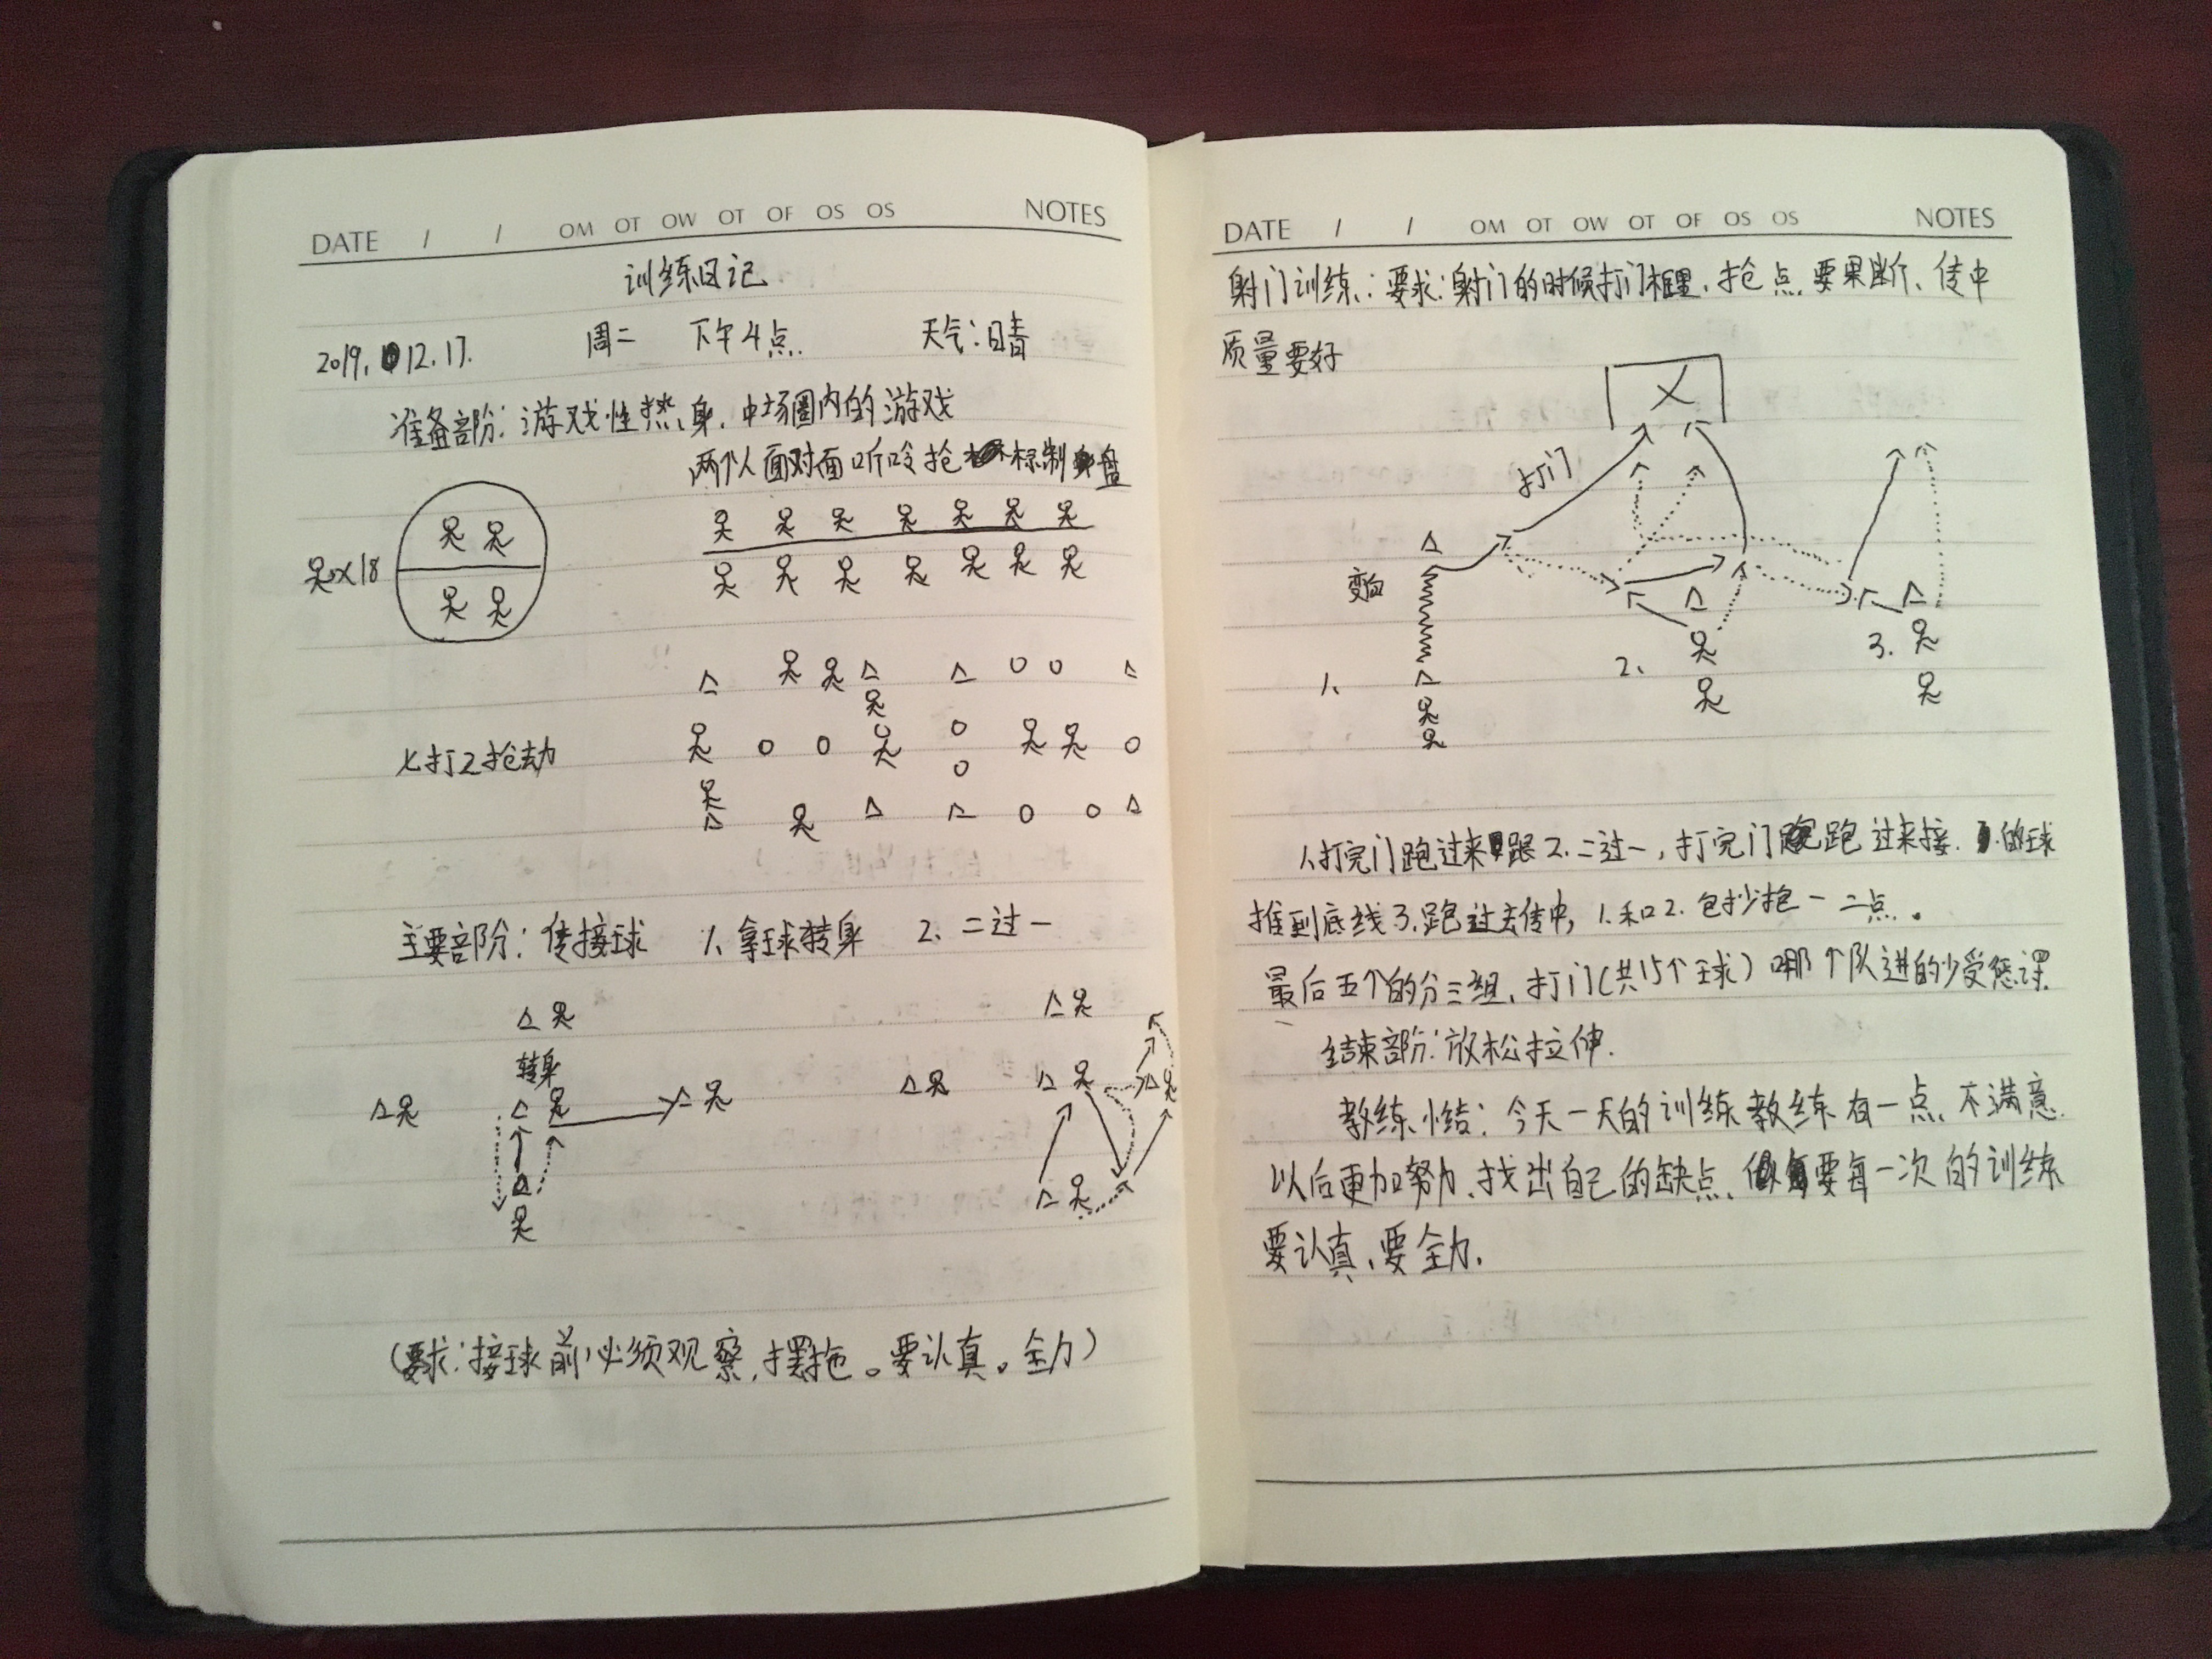 DATE / / OM OT OW OT OF OS OS NOTES
训练日记
2019. 12.17. 周二 下午4点. 天气:晴
准备部阶:游戏性热身.中场圈内的游戏
两个人面对面听呤抢 标制盘
×18
打2抢劫
主要部阶:传接球 1.拿球转身 2.二过一
转身
(要求:接球前必须观察,摆拖。要认真。全力)
DATE / / OM OT OW OT OF OS OS NOTES
射门训练:要求:射门的时候打门框里.抢点要果断、传中
质量要好
打门
变向
1.
2.
3.
1.打完门跑过来跟2.二过一,打完门跑过来接.3.的球
推到底线3.跑过去传中,1.和2.包抄抢一二点.
最后五个的分三组,打门(共15个球)哪个队进的少受惩课.
结束部阶:放松拉伸.
教练小结:今天一天的训练教练有一点不满意.
以后更加努力.找出自己的缺点、要每一次的训练
要认真、要全力.